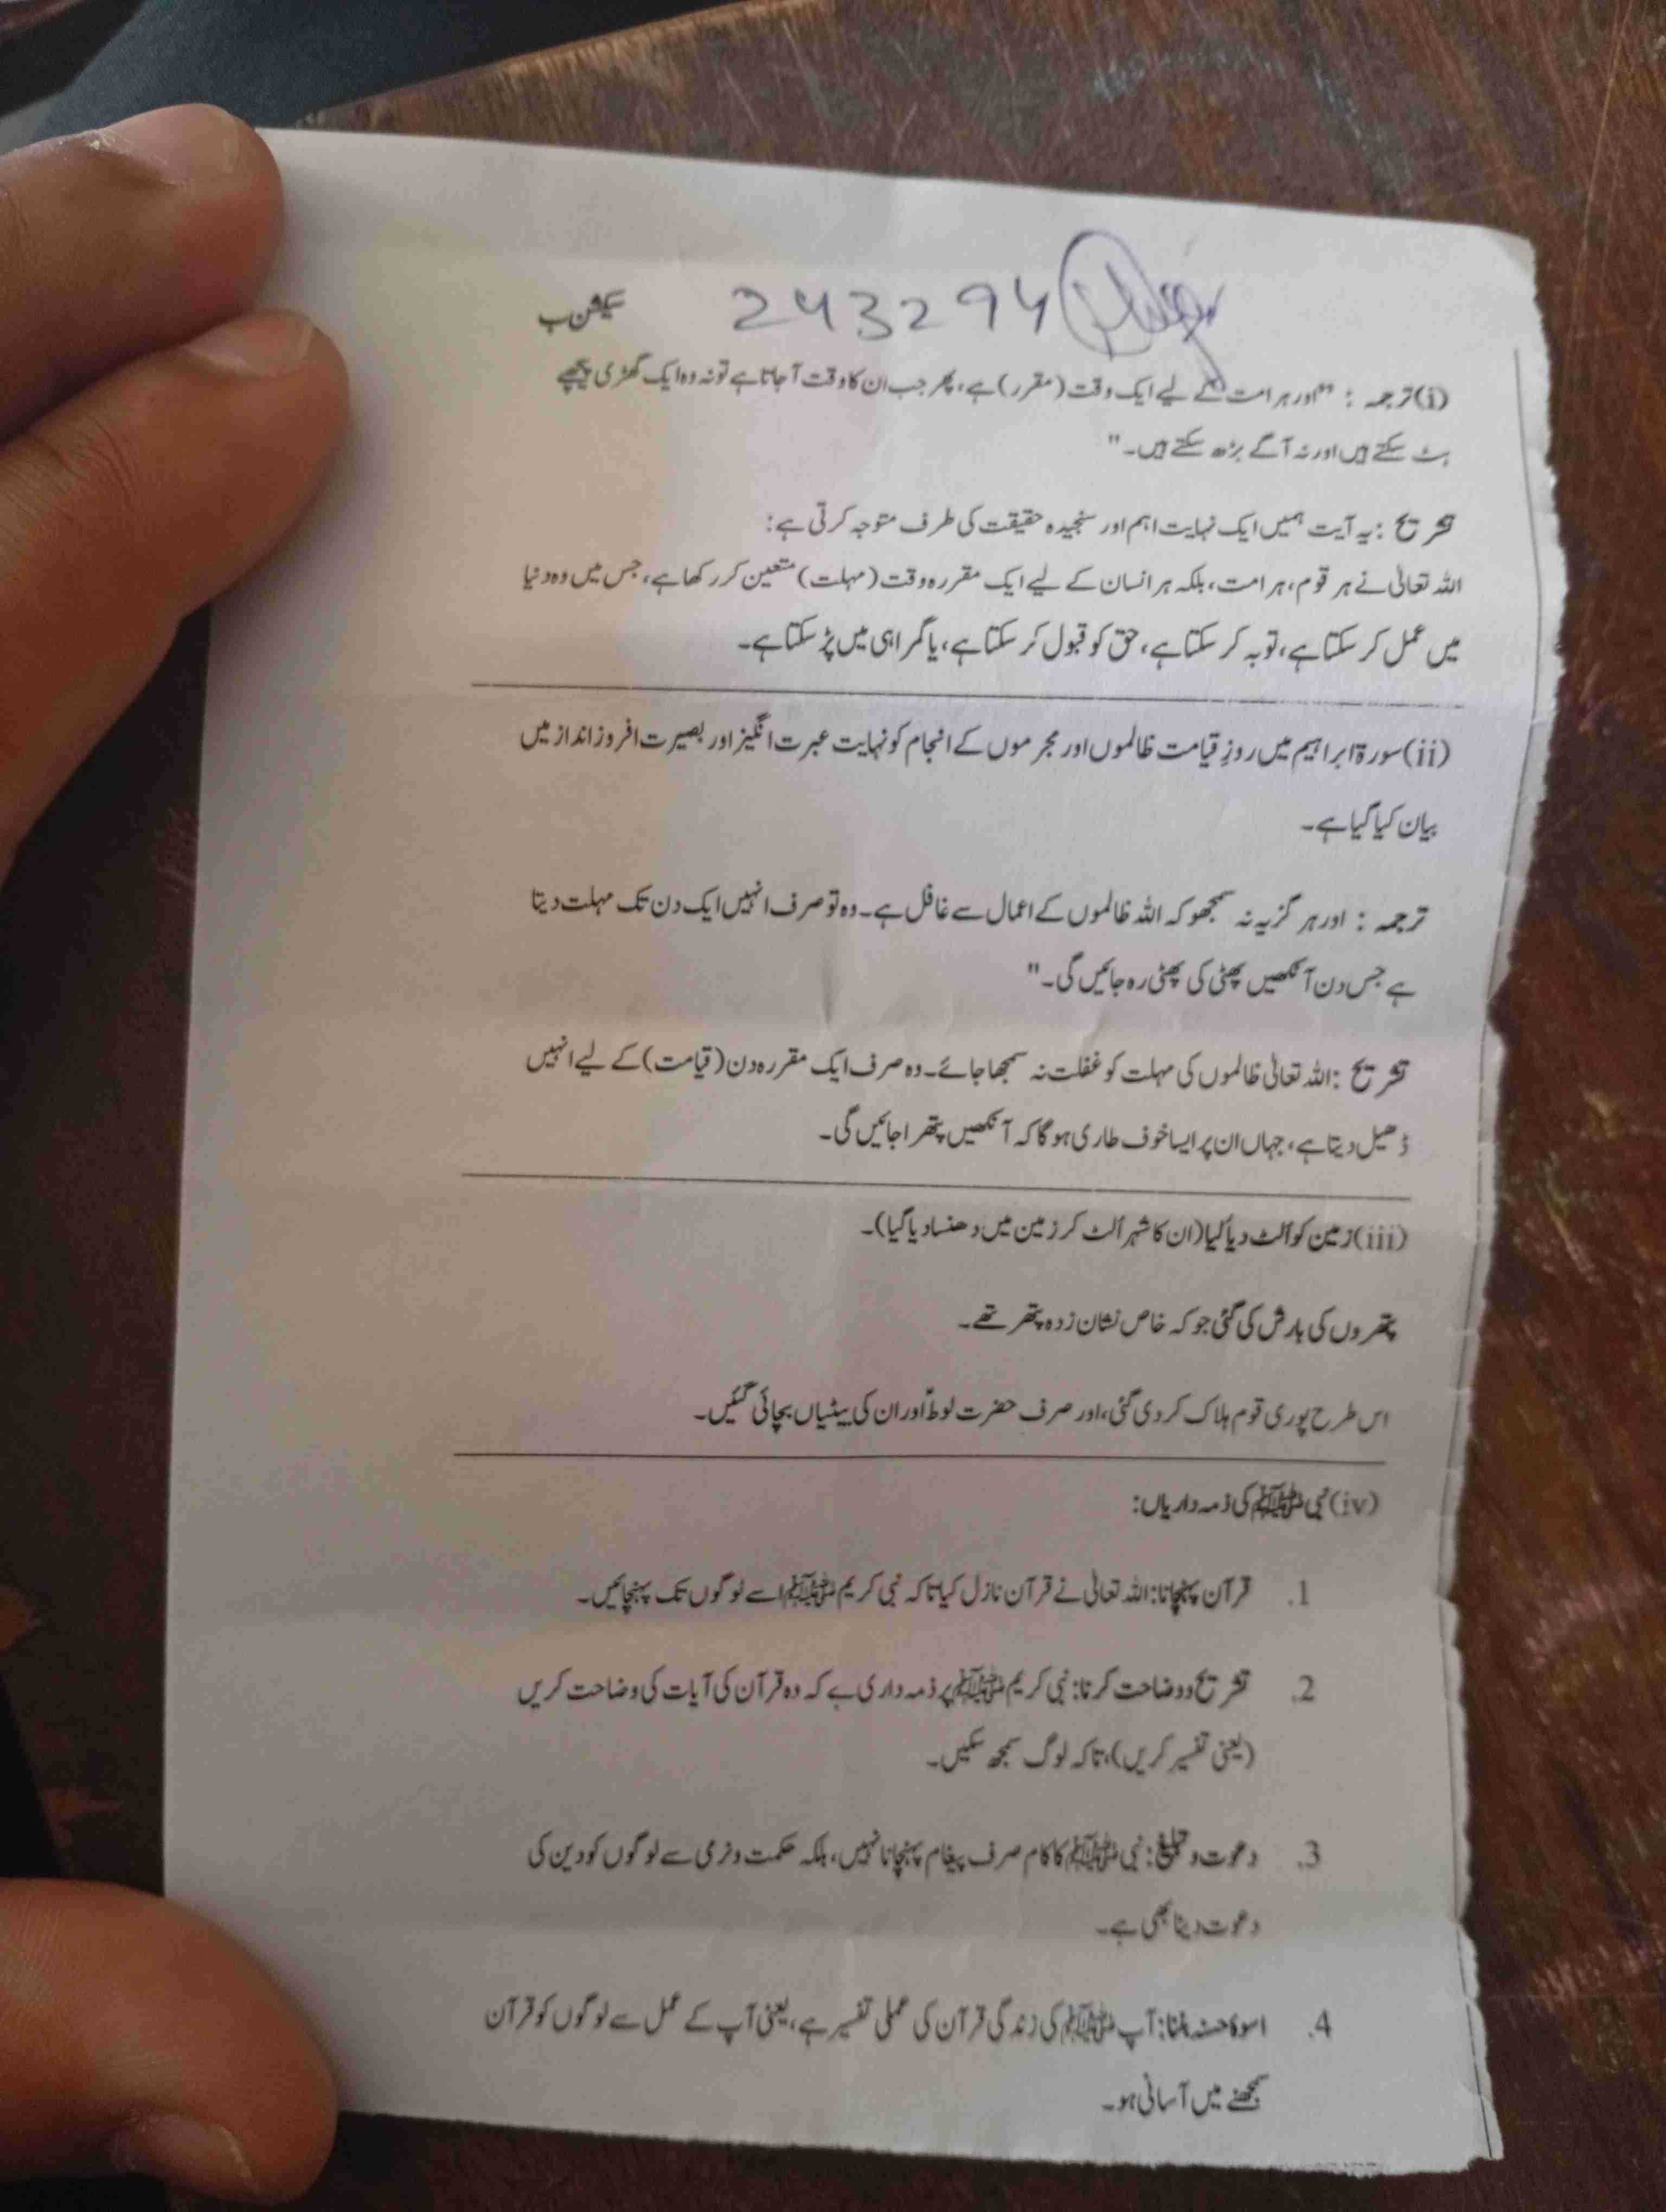 243294
سیکشن ب
(i) ترجمہ : "اور ہر امت کے لیے ایک وقت (مقرر) ہے، پھر جب ان کا وقت آ جاتا ہے تو نہ وہ ایک گھڑی پیچھے
ہٹ سکتے ہیں اور نہ آگے بڑھ سکتے ہیں۔"
تشریح : یہ آیت ہمیں ایک نہایت اہم اور سنجیدہ حقیقت کی طرف متوجہ کرتی ہے:
اللہ تعالیٰ نے ہر قوم، ہر امت، بلکہ ہر انسان کے لیے ایک مقررہ وقت (مہلت) متعین کر رکھا ہے، جس میں وہ دنیا
میں عمل کر سکتا ہے، توبہ کر سکتا ہے، حق کو قبول کر سکتا ہے، یا گمراہی میں پڑ سکتا ہے۔
(ii) سورۃ ابراہیم میں روزِ قیامت ظالموں اور مجرموں کے انجام کو نہایت عبرت انگیز اور بصیرت افروز انداز میں
بیان کیا گیا ہے۔
ترجمہ : اور ہرگز یہ نہ سمجھو کہ اللہ ظالموں کے اعمال سے غافل ہے۔ وہ تو صرف انہیں ایک دن تک مہلت دیتا
ہے جس دن آنکھیں پھٹی کی پھٹی رہ جائیں گی۔"
تشریح : اللہ تعالیٰ ظالموں کی مہلت کو غفلت نہ سمجھا جائے۔ وہ صرف ایک مقررہ دن (قیامت) کے لیے انہیں
ڈھیل دیتا ہے، جہاں ان پر ایسا خوف طاری ہوگا کہ آنکھیں پتھرا جائیں گی۔
(iii) زمین کو اُلٹ دیا گیا (ان کا شہر اُلٹ کر زمین میں دھنسا دیا گیا)۔
پتھروں کی بارش کی گئی جو کہ خاص نشان زدہ پتھر تھے۔
اس طرح پوری قوم ہلاک کر دی گئی، اور صرف حضرت لوطؑ اور ان کی بیٹیاں بچائی گئیں۔
(iv) نبی ﷺ کی ذمہ داریاں:
1. قرآن پہنچانا: اللہ تعالیٰ نے قرآن نازل کیا تاکہ نبی کریم ﷺ اسے لوگوں تک پہنچائیں۔
2. تشریح و وضاحت کرنا: نبی کریم ﷺ پر ذمہ داری ہے کہ وہ قرآن کی آیات کی وضاحت کریں
(یعنی تفسیر کریں)، تاکہ لوگ سمجھ سکیں۔
3. دعوت و تبلیغ: نبی ﷺ کا کام صرف پیغام پہنچانا نہیں، بلکہ حکمت و نرمی سے لوگوں کو دین کی
دعوت دینا بھی ہے۔
4. اسوۂ حسنہ بننا: آپ ﷺ کی زندگی قرآن کی عملی تفسیر ہے، یعنی آپ کے عمل سے لوگوں کو قرآن
سمجھنے میں آسانی ہو۔